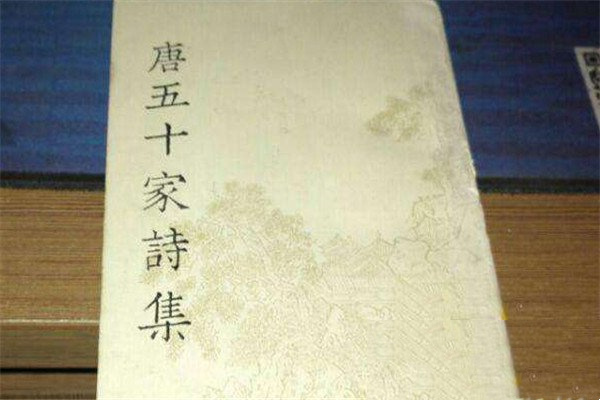 唐五十家詩集